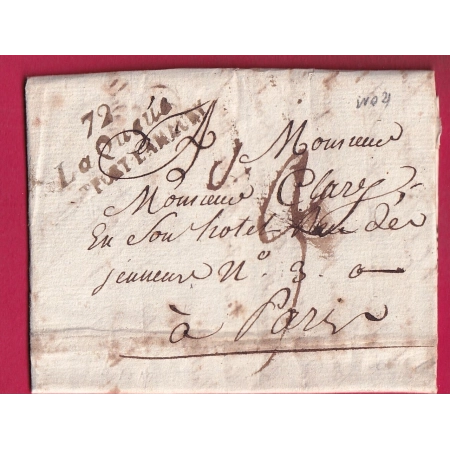 72
La Queue
A Monsieur
Monsieur Clary
En Son hotel Rue des
jeuneurs N° 3
à Paris